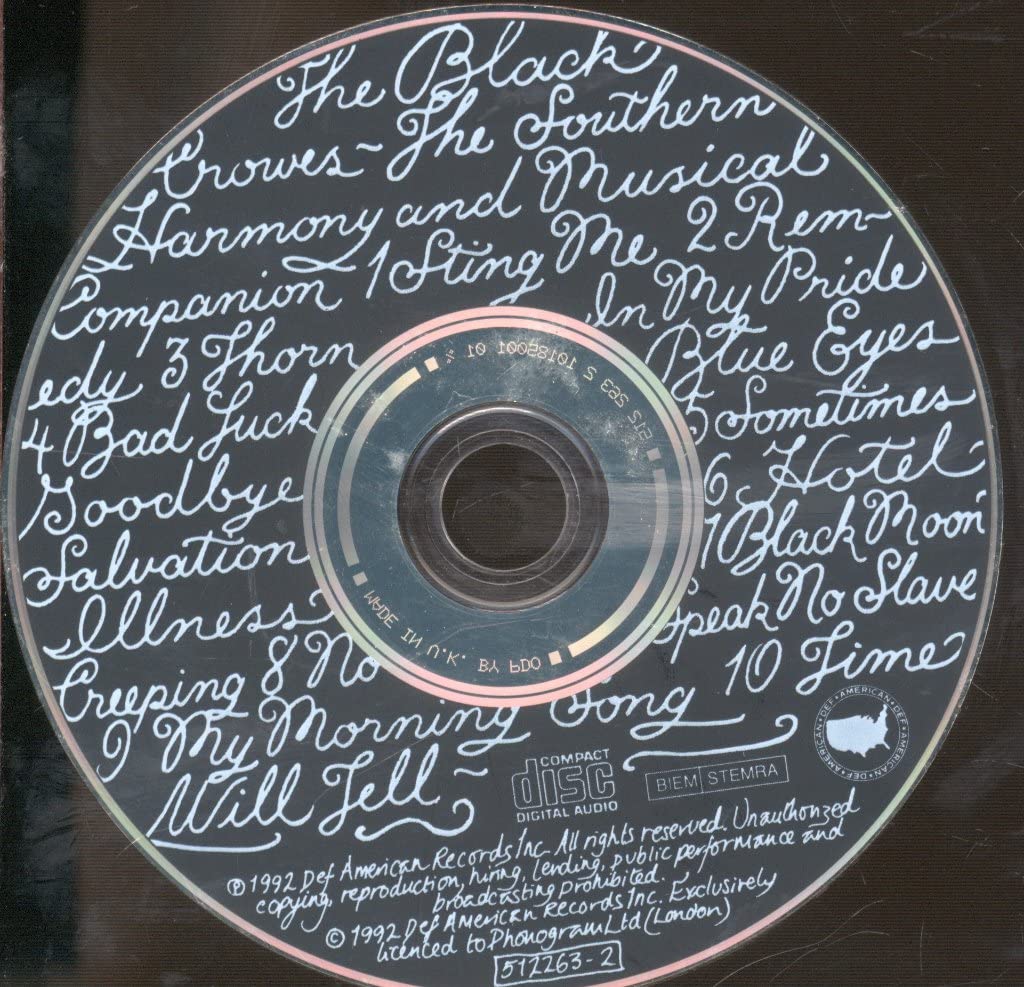 The Black
Crowes~The Southern
Harmony and Musical
Companion 1 Sting Me 2 Rem-
edy 3 Thorn In My Pride
4 Bad Luck Blue Eyes
Goodbye 5 Sometimes
Salvation 6 Hotel
Illness 7 Black Moon
Creeping 8 No Speak No Slave
9 My Morning Song 10 Time
Will Tell~
COMPACT
disc
DIGITAL AUDIO
BIEM STEMRA
DEF•AMERICAN•DEF•AMERICAN•DEF•AMERICAN•
℗ 1992 Def American Records Inc. All rights reserved. Unauthorized
copying, reproduction, hiring, lending, public performance and
broadcasting prohibited.
© 1992 Def American Records Inc. Exclusively
licenced to Phonogram Ltd (London)
512263-2
MADE IN U.K. BY PDO